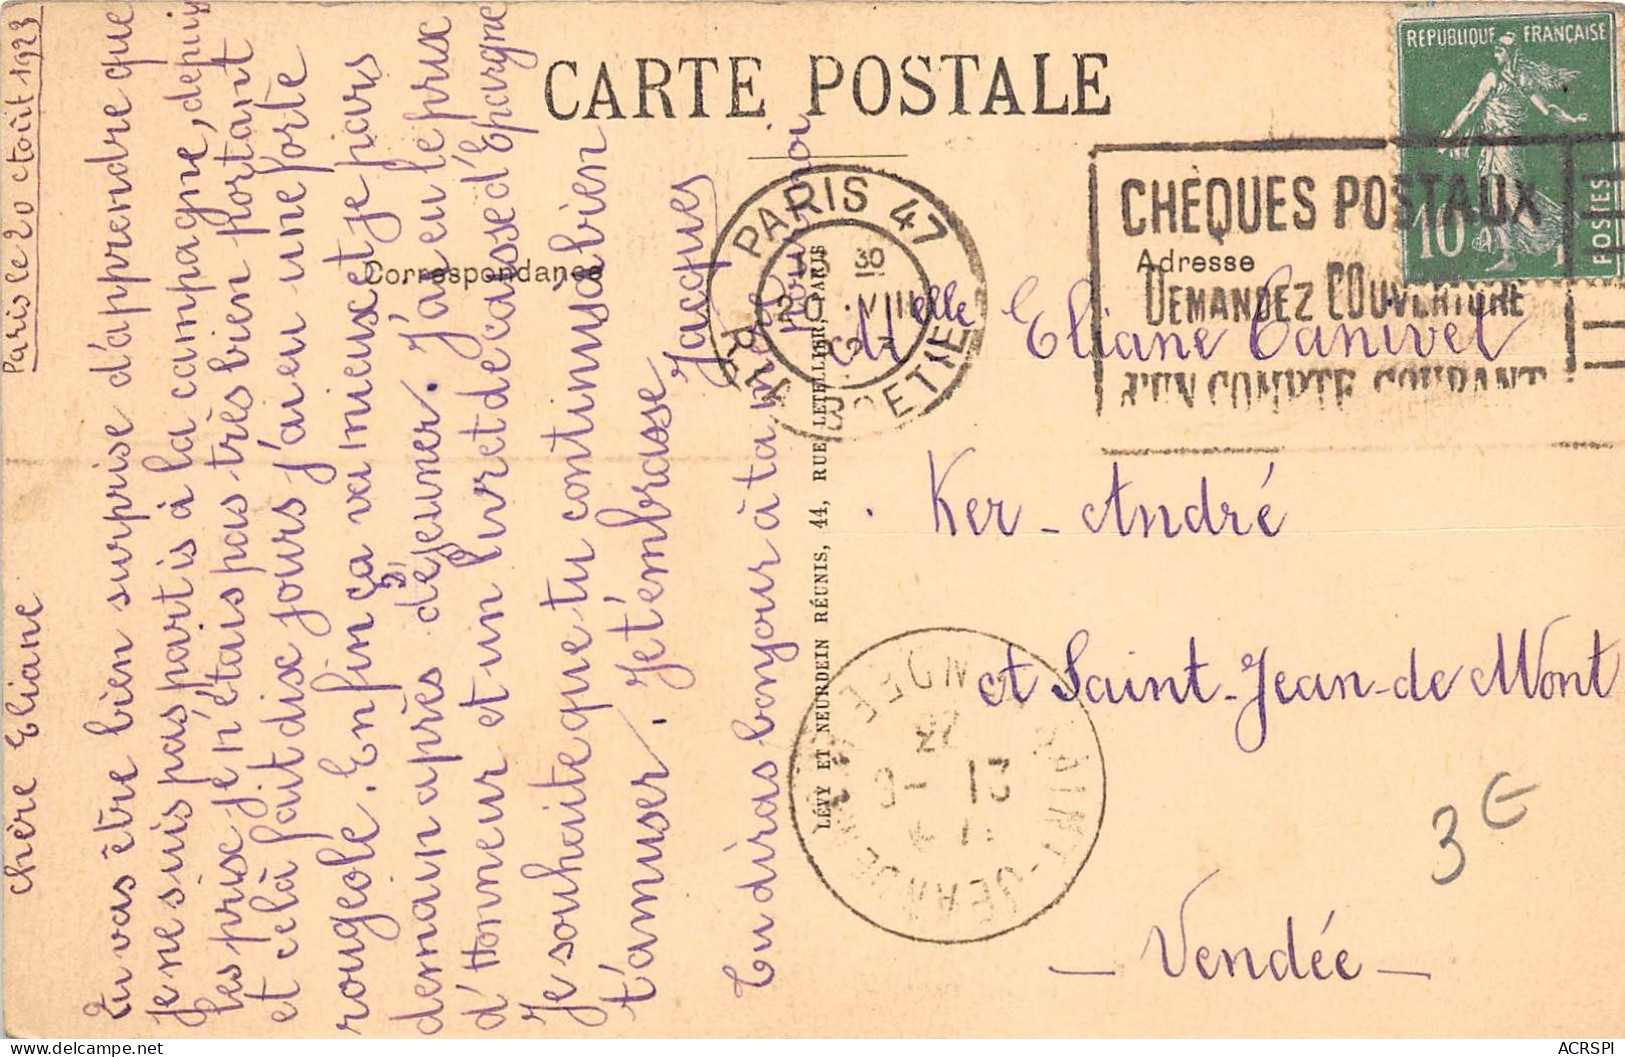 CARTE POSTALE
Correspondance
Adresse
REPUBLIQUE FRANÇAISE
10
POSTES
CHÈQUES POSTAUX
DEMANDEZ L'OUVERTURE
D'UN COMPTE COURANT
PARIS 47
30
VIII
SAINT-JEAN-DE-MONTS
VENDEE
21-8
23
LÉVY ET NEURDEIN RÉUNIS, 44, RUE LETELLIER, PARIS
Paris le 20 Août 1923
Chère Eliane
Tu vas être bien surprise d'apprendre que
je ne suis pas partis à la campagne, depuis
les prix je n'étais pas très bien portant
et celà faut dix jours j'ai eu une forte
rougeole. Enfin ça va mieux et je pars
demain après déjeuner. J'ai eu le prix
d'Honneur et un livret de caisse d'Épargne
Je souhaite que tu continues à bien
t'amuser. Je t'embrasse
Jacques
Tu diras bonjour à ta mère
pour moi
Melle Eliane Canivet
Ker-André
et Saint-Jean-de Mont
- Vendée -
3 €
ACRSPI